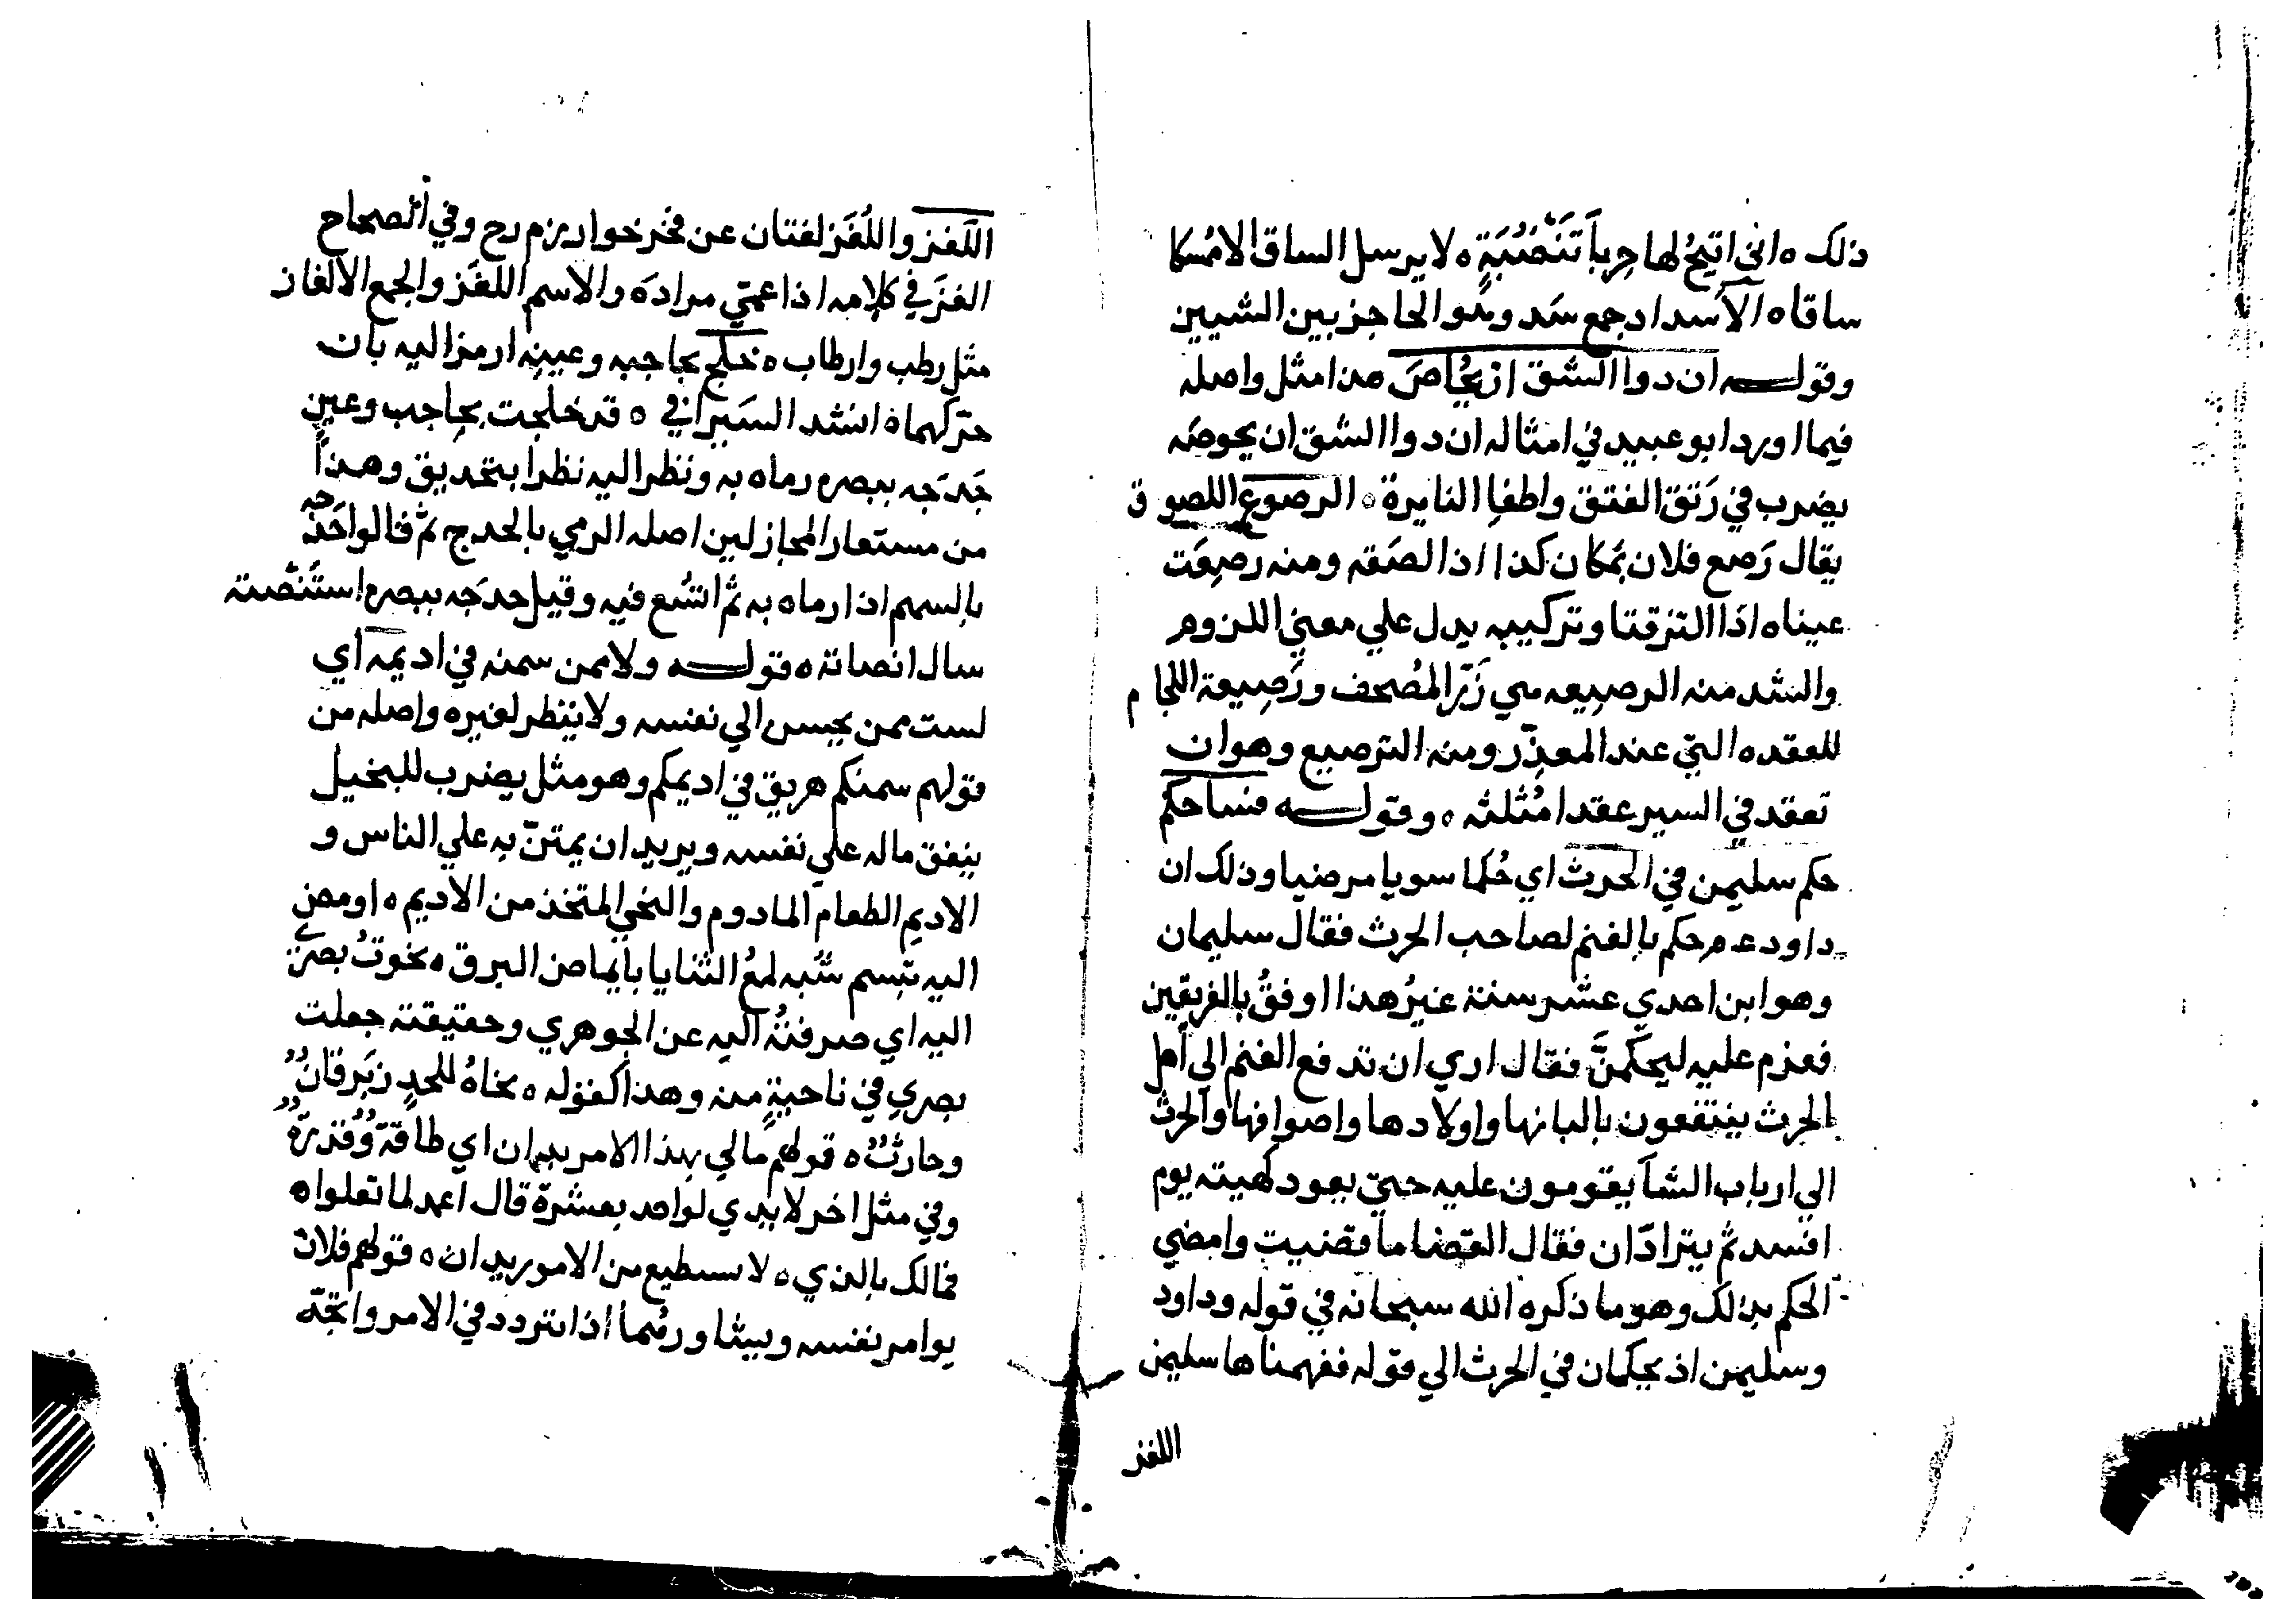 ذلك ه اني اتيح لها حِرباَ تَنْضُبَةٍ ه لا يرسل الساق الا مُمسكا
ساقا ه الاَسداد جمع سَد وهو الحاجز بين الشيين
وقولـــه ان دوا الشق ان يُحَاصَ هذا مثل واصله
فيما اورد ابو عبيد في امثاله ان دوا الشق ان يحوصَه
يضرب في رَتق الفتق واطفاِ النايرة ه الرصوع اللصوق
يقال رَصع فلان بمَكان كذا اذا لصَقه ومنه رصِعَت
عيناه اذا التزقتا وتركيبه يدل علي معني اللزوم
والشد منه الرصيعه هي زَرّ المُصحف ورَصِيعة اللجام
للعقده التي عند المعذّر ومنه الترصيع وهو ان
تعقد في السير عقدا مُثلثه ه وقولـــه فنساحكم
حكم سليمن في الحرث اي حُكما سويا مرضيا وذلك ان
داود عم حكم بالغنم لصاحب الحرث فقال سليمان
وهو ابن احدي عشر سنة غيرُ هذا اوفقُ بالفريقين
فعزم عليه ليحكّمنَّ فقال اري ان تدفع الغنم الي أهل
الحرث ينتفعون بالبانها واولادها واصوافها والحرث
الي ارباب الشاَ يقومون عليه حتي يعود كهيته يوم
افسد ثم يترادّان فقال القضا ما قضيت وامضي
الحكم بذلك وهو ما ذكره الله سبحانه في قوله وداود
وسليمن اذ يحكمان في الحرث الي قوله ففهمناها سليمن
اللغز
اللَغز واللُغَز لغتان عن فخر خوارزم رح وفي الصحاح
الغزَ في كلامه اذا عمّي مرادَه والاسم اللغَز والجمع الالغاز
مثل رطب وارطاب ه خلج بحاجبه وعينِه ارمز اليه بان
حرّكهما ه انشد السَيرافي ه قد خلجت بحاجب وعين
حَدَجه ببصره رماه به ونظر اليه نظرا بتحديق وهذا
من مستعار المجاز لين اصله الرمي بالحدج ثم قالوا حَدَجه
بالسهم اذا رماه به ثم اتسُع فيه وقيل حدَجه ببصره استَنْصته
سال انصاته ه قولـــه ولا ممن سمنه في اديمه اي
لست ممن يحبس الي نفسه ولا ينظر لغيره واصله من
قولهم سمنكم هريق في اديمكم وهو مثل يضرب للبخيل
ينفق ماله علي نفسه ويريد ان يمتنّ به علي الناس و
الاديم الطعام المادوم والنحي المتخذ من الاديم ه اومض
اليه تبسم شُبه لمعُ الثنايا بايماض البرق ه نحوتُ بصري
اليه اي صرفتُه اليه عن الجوهري وحقيقته جعلت
بصري في ناحيةٍ منه وهذا كقوله ه نحاهُ للحدٍ زبَرقانُ
وحارثُ ه قولهم مالي بهذا الامر يدان اي طاقة وقُدرةُ
وفي مثل اخر لا يدي لواحد بعشرة قال اعمد لما تعلوا ه
فمالك بالذي ه لا تستطيع من الامور يدان ه قولهم فلان
يوامر نفسه وبيثا ورئما اذا تردد في الامر واتجّه